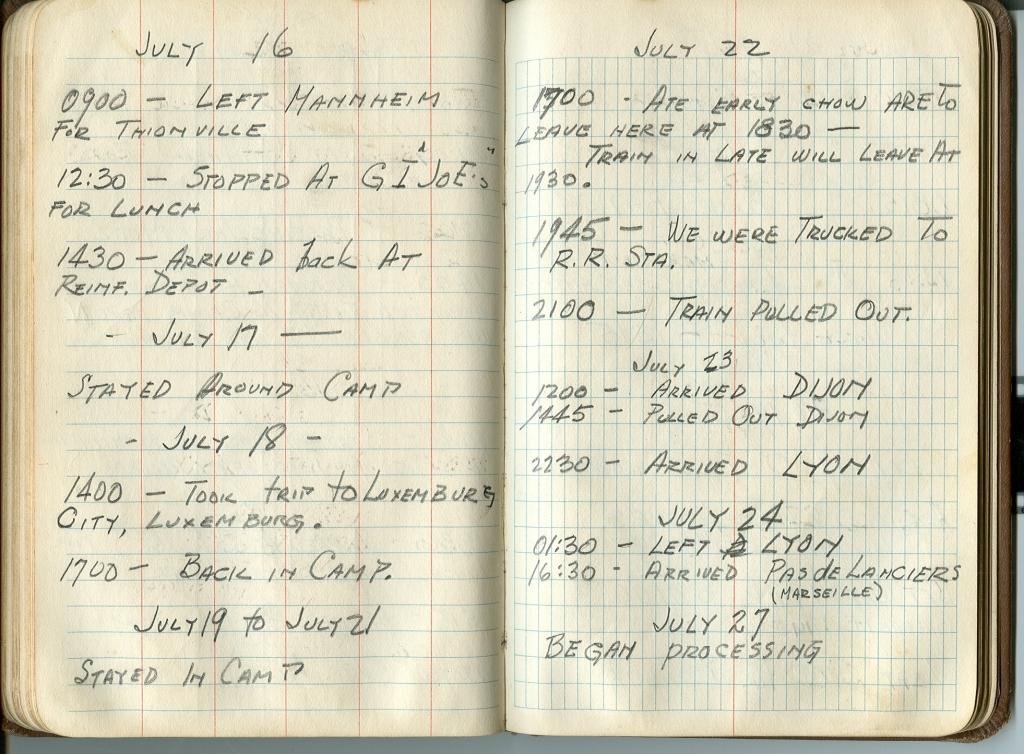 JULY 16
0900 - LEFT MANNHEIM
FOR THIONVILLE
12:30 - STOPPED AT G I "JOE'S"
FOR LUNCH
1430 - ARRIVED back AT
REINF. DEPOT -
- JULY 17 —
STAYED AROUND CAMP
- JULY 18 -
1400 - TOOK TRIP TO LUXEMBURG
CITY, LUXEMBURG.
1700 - BACK IN CAMP.
JULY 19 to JULY 21
STAYED IN CAMP
JULY 22
1700 - ATE EARLY CHOW ARE TO
LEAVE HERE AT 1830 —
TRAIN IN LATE WILL LEAVE AT
1930.
1945 - WE WERE TRUCKED TO
R.R. STA.
2100 — TRAIN PULLED OUT.
JULY 23
1200 - ARRIVED DIJON
1445 - PULLED OUT DIJON
2230 - ARRIVED LYON
JULY 24
01:30 - LEFT LYON
16:30 - ARRIVED PAS de LANCIERS
(MARSEILLE)
JULY 27
BEGAN PROCESSING